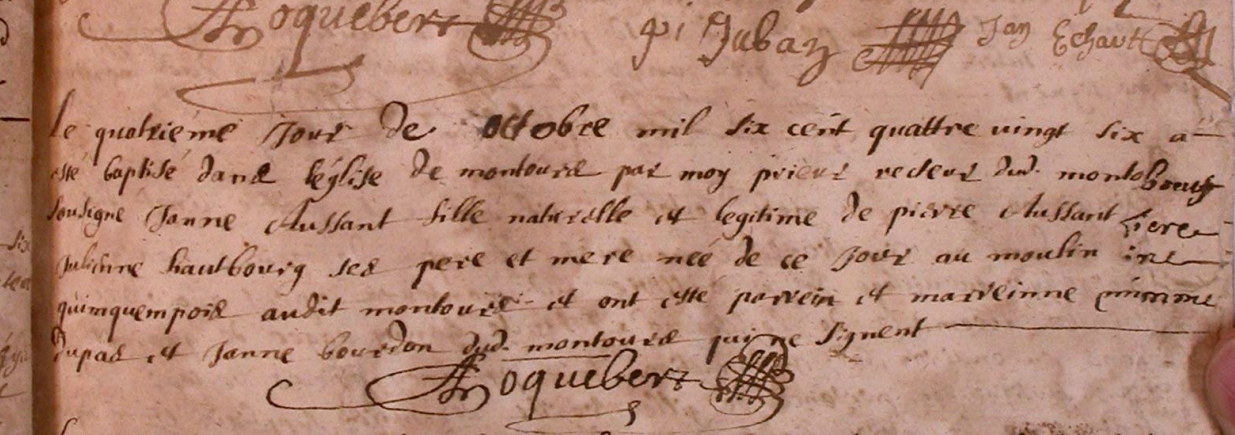 Roquebert pi Juban Jan Echart
Le quatriéme Jour de octobre mil six cent quattre vingt six a
esté baptisé dans l'église de montours par moy prieur recteur dud. montours
sousigne Janne Aussant fille naturelle et legitime de pierre Aussant
Julienne hautbourg ses pere et mere née de ce Jour au moulin
quinquempois audit montours et ont esté parrein et marreinne
dupas et Janne bourdon dud. montours qui ne signent
Roquebert